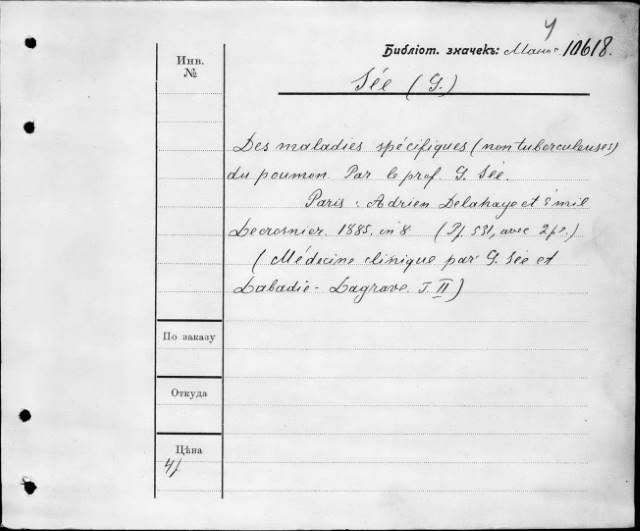 4
Библіот. значекъ: Мано 10618.
Инв.
№
Sée (G.)
Des maladies spécifiques (non tuberculeuses)
du poumon. Par le prof. G. Sée.
Paris: Adrien Delahaye et Emil
Lecrosnier. 1885. in 8 (Pf. 531, avec 2 pl.)
(Médecine clinique par G. Sée et
Labadie-Lagrave. T. II)
По заказу
Откуда
Цѣна
4/